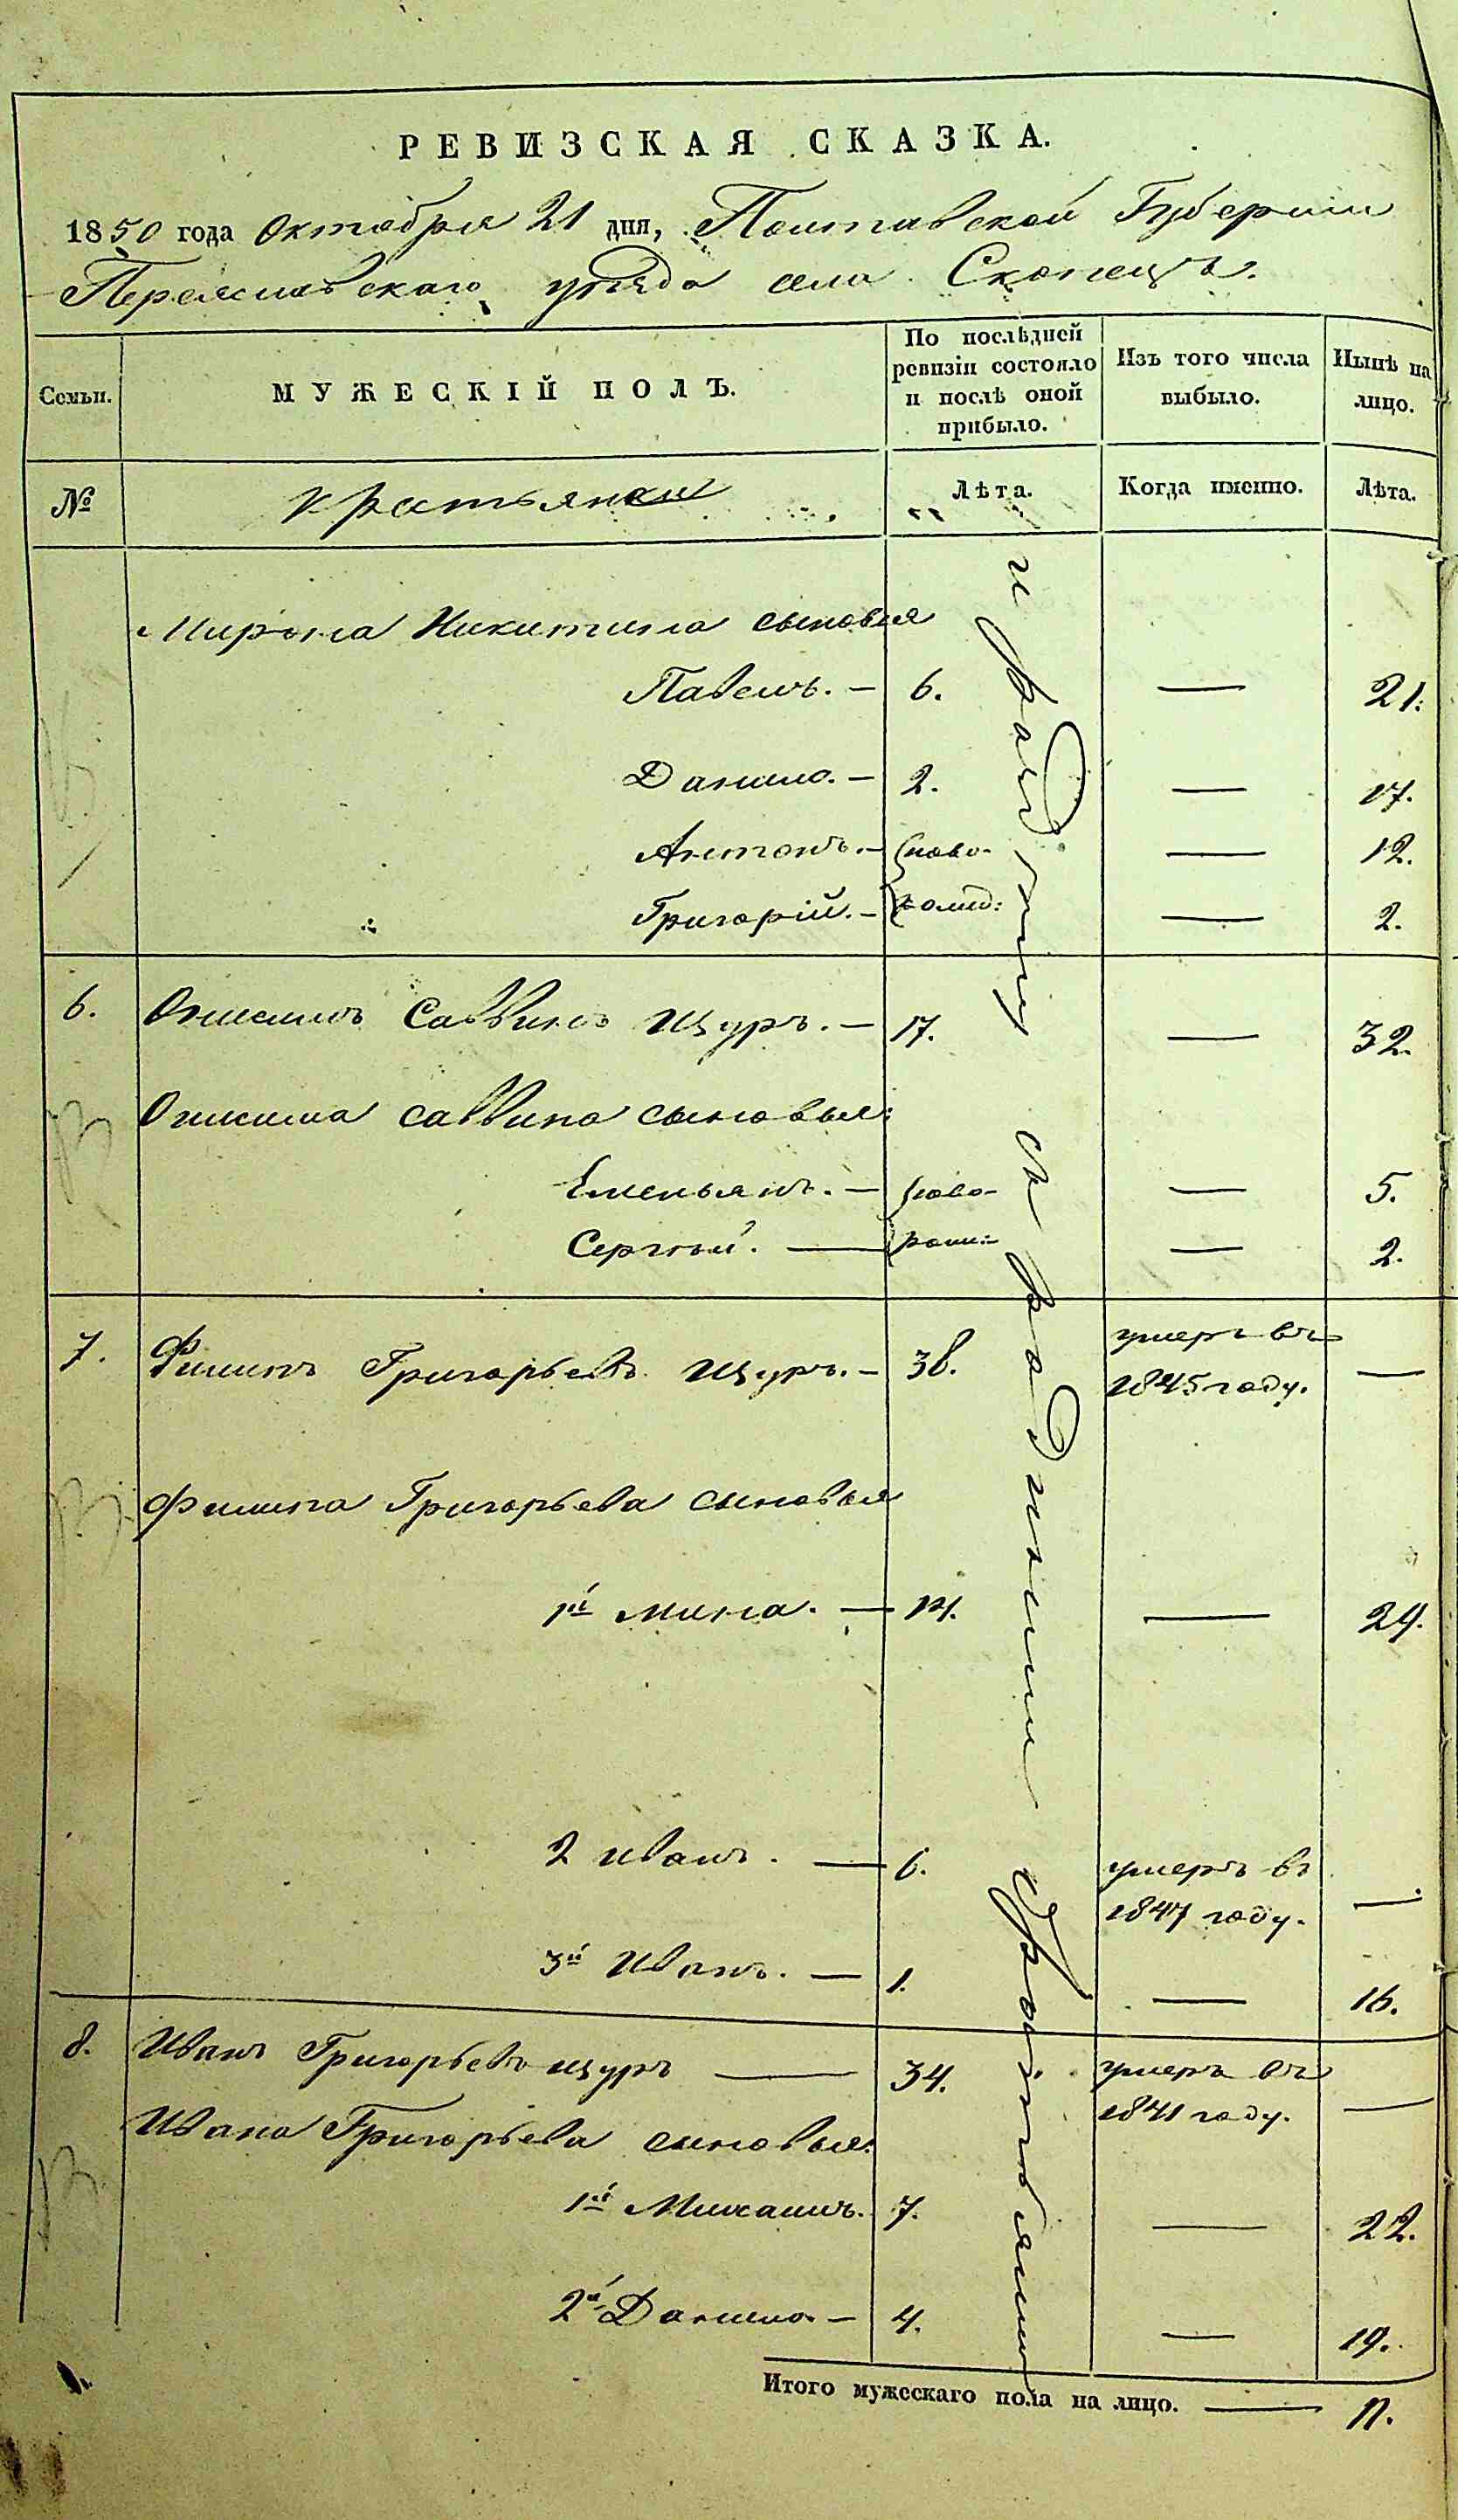 РЕВИЗСКАЯ СКАЗКА.
1850 года Октября 21 дня, Полтавской Губернии
Переяславскаго уѣзда села Скопецъ.
Семьи. МУЖЕСКІЙ ПОЛЪ. По послѣдней ревизіи состояло и послѣ оной прибыло. Изъ того числа выбыло. Нынѣ на лицо.
№ Крестьяне Лѣта. Когда именно. Лѣта.
Мирона Никитина сыновья
Павелъ. — 6. — 21.
Данило. — 2. — 17.
Антонъ. — ново- — 12.
Григорій. — рожд: — 2.
6. Онисимъ Саввинъ Щуръ. — 17. — 32.
Онисима Саввина сыновья:
Емельянъ. — ново- — 5.
Сергѣй. — рожд: — 2.
7. Филипъ Григорьевъ Щуръ. — 38. умеръ въ 1845 году. —
Филипа Григорьева сыновья
1й Мина. — 14. — 29.
2 Иванъ. — 6. умеръ въ 1847 году. —
3й Иванъ. — 1. — 16.
8. Иванъ Григорьевъ Щуръ — 34. умеръ въ 1841 году. —
Ивана Григорьева сыновья:
1й Михаилъ. 7. — 22.
2й Данило. — 4. — 19.
Итого мужескаго пола на лицо. — 11.